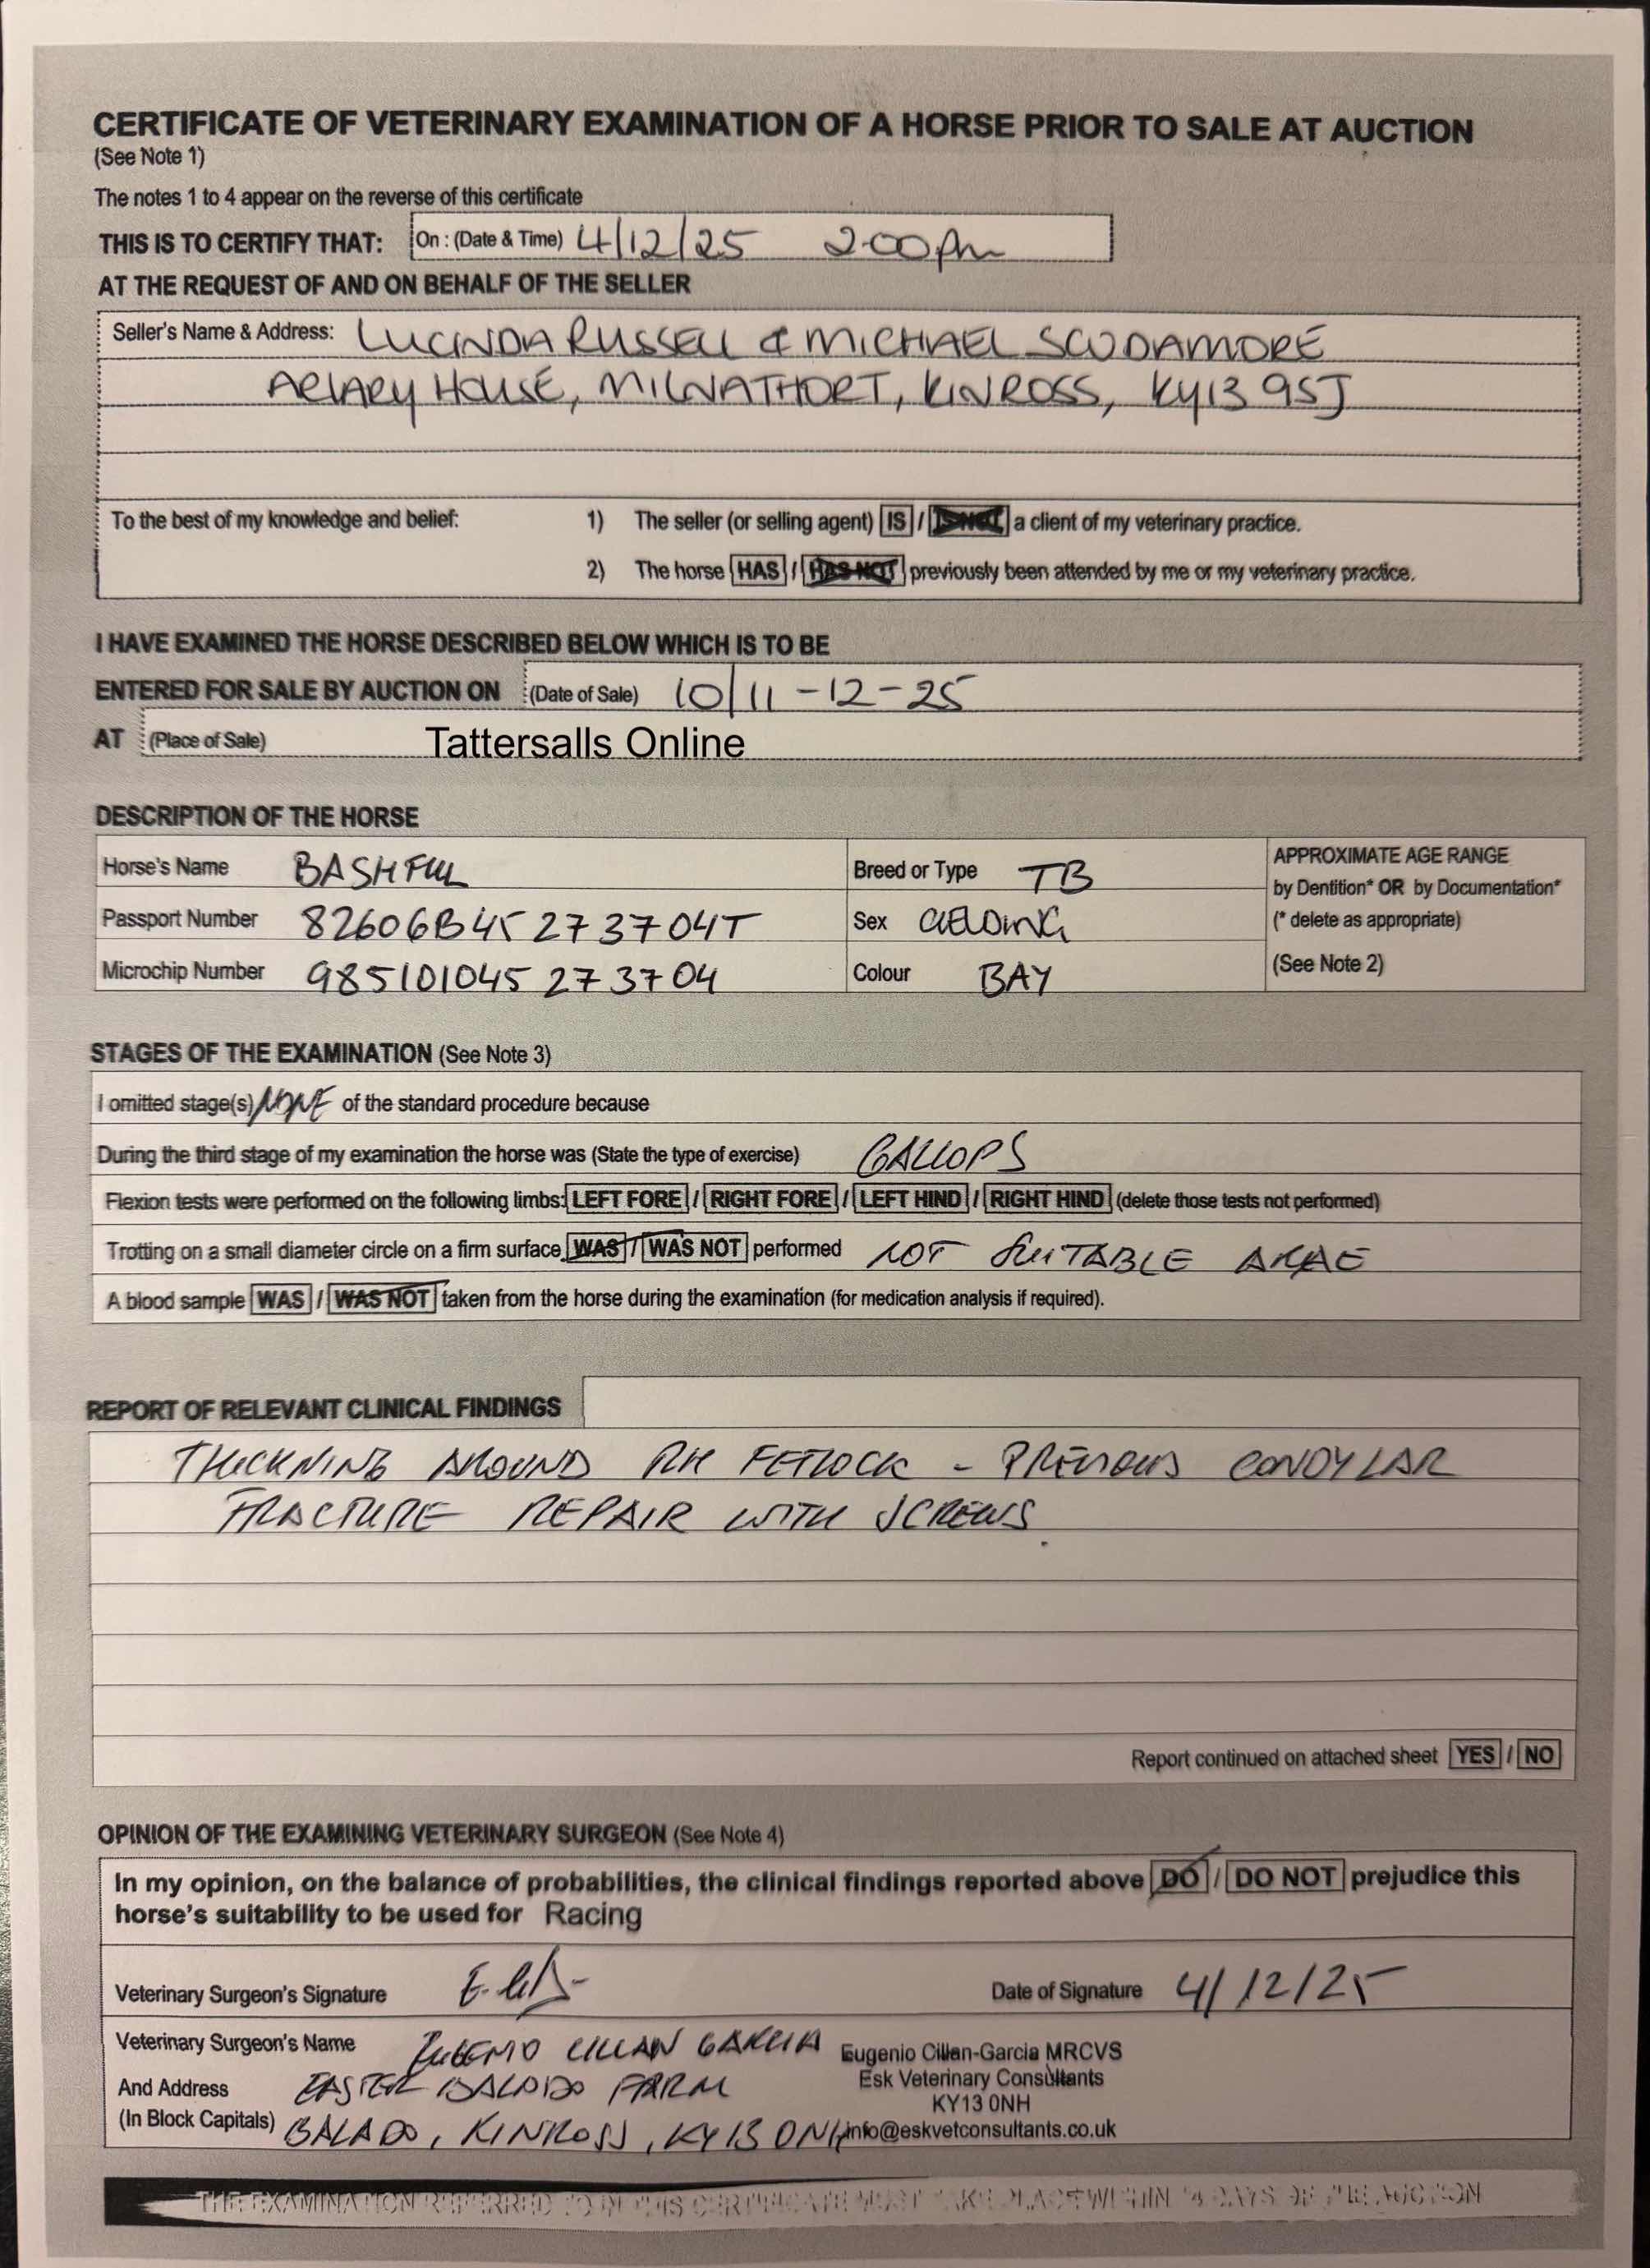 CERTIFICATE OF VETERINARY EXAMINATION OF A HORSE PRIOR TO SALE AT AUCTION
(See Note 1)
The notes 1 to 4 appear on the reverse of this certificate
THIS IS TO CERTIFY THAT: On : (Date & Time) 4/12/25 2.00pm
AT THE REQUEST OF AND ON BEHALF OF THE SELLER
Seller's Name & Address: LUCINDA RUSSELL & MICHAEL SCUDAMORE
ARLARY HOUSE, MILNATHORT, KINROSS, KY13 9SJ
To the best of my knowledge and belief: 1) The seller (or selling agent) IS / IS NOT a client of my veterinary practice.
2) The horse HAS / HAS NOT previously been attended by me or my veterinary practice.
I HAVE EXAMINED THE HORSE DESCRIBED BELOW WHICH IS TO BE
ENTERED FOR SALE BY AUCTION ON (Date of Sale) 10/11-12-25
AT (Place of Sale) Tattersalls Online
DESCRIPTION OF THE HORSE
Horse's Name BASHFUL Breed or Type TB APPROXIMATE AGE RANGE
by Dentition* OR by Documentation*
Passport Number 82606B45273704T Sex GELDING (* delete as appropriate)
Microchip Number 985101045273704 Colour BAY (See Note 2)
STAGES OF THE EXAMINATION (See Note 3)
I omitted stage(s) NONE of the standard procedure because
During the third stage of my examination the horse was (State the type of exercise) GALLOPS
Flexion tests were performed on the following limbs: LEFT FORE / RIGHT FORE / LEFT HIND / RIGHT HIND (delete those tests not performed)
Trotting on a small diameter circle on a firm surface WAS / WAS NOT performed NOT SUITABLE ARAE
A blood sample WAS / WAS NOT taken from the horse during the examination (for medication analysis if required).
REPORT OF RELEVANT CLINICAL FINDINGS
THICKNING AROUND RH FETLOCK - PREVIOUS CONDYLAR
FRACTURE REPAIR WITH SCREWS.
Report continued on attached sheet YES / NO
OPINION OF THE EXAMINING VETERINARY SURGEON (See Note 4)
In my opinion, on the balance of probabilities, the clinical findings reported above DO / DO NOT prejudice this
horse's suitability to be used for Racing
Veterinary Surgeon's Signature Date of Signature 4/12/25
Veterinary Surgeon's Name EUGENIO CILLAN GARCIA Eugenio Cillan-Garcia MRCVS
And Address EASTER BALADO FARM Esk Veterinary Consultants
KY13 0NH
(In Block Capitals) BALADO, KINROSS, KY13 0NH info@eskvetconsultants.co.uk
THE EXAMINATION REFERRED TO IN THIS CERTIFICATE MUST TAKE PLACE WITHIN 14 DAYS OF THE AUCTION